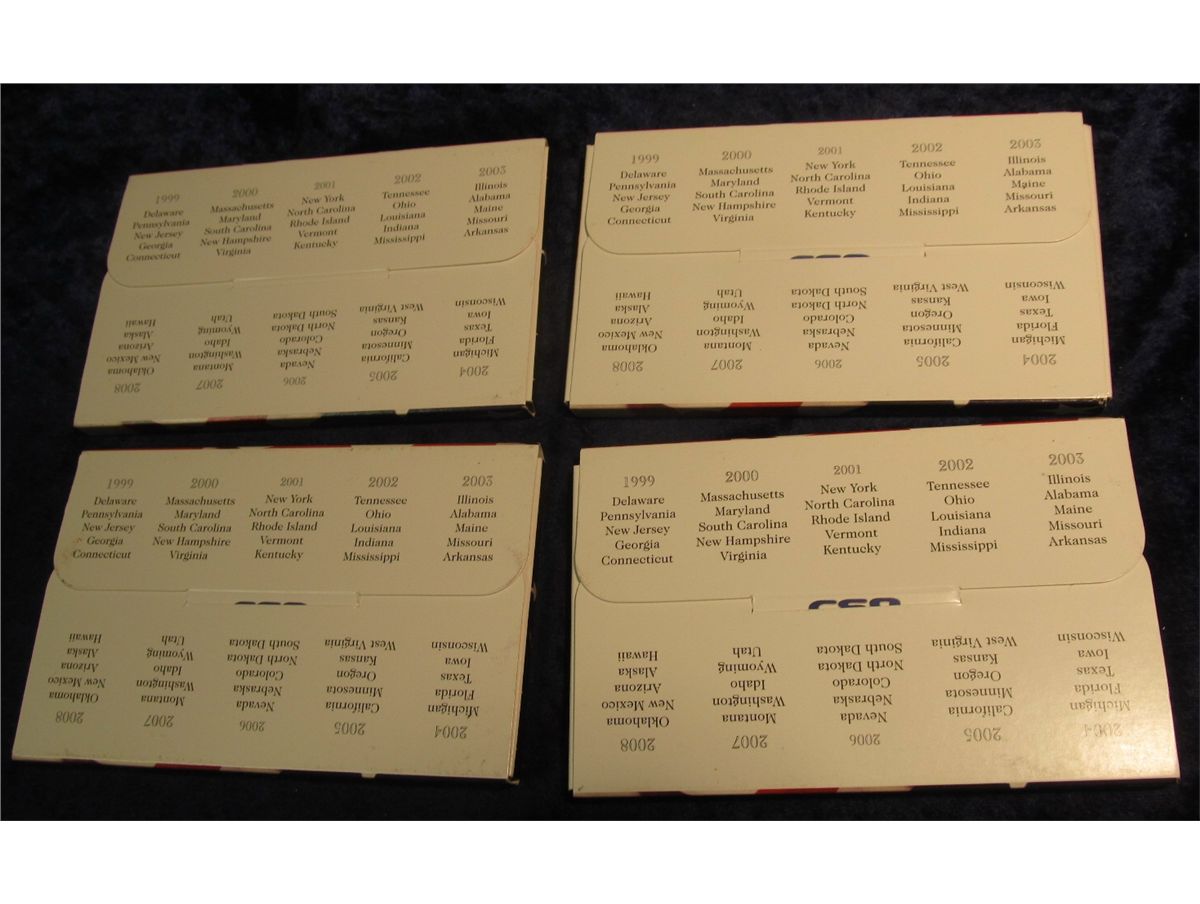 1999
Delaware
Pennsylvania
New Jersey
Georgia
Connecticut
2000
Massachusetts
Maryland
South Carolina
New Hampshire
Virginia
2001
New York
North Carolina
Rhode Island
Vermont
Kentucky
2002
Tennessee
Ohio
Louisiana
Indiana
Mississippi
2003
Illinois
Alabama
Maine
Missouri
Arkansas
2004
Michigan
Florida
Texas
Iowa
Wisconsin
2005
California
Minnesota
Oregon
Kansas
West Virginia
2006
Nevada
Nebraska
Colorado
North Dakota
South Dakota
2007
Montana
Washington
Idaho
Wyoming
Utah
2008
Oklahoma
New Mexico
Arizona
Alaska
Hawaii
1999
Delaware
Pennsylvania
New Jersey
Georgia
Connecticut
2000
Massachusetts
Maryland
South Carolina
New Hampshire
Virginia
2001
New York
North Carolina
Rhode Island
Vermont
Kentucky
2002
Tennessee
Ohio
Louisiana
Indiana
Mississippi
2003
Illinois
Alabama
Maine
Missouri
Arkansas
2004
Michigan
Florida
Texas
Iowa
Wisconsin
2005
California
Minnesota
Oregon
Kansas
West Virginia
2006
Nevada
Nebraska
Colorado
North Dakota
South Dakota
2007
Montana
Washington
Idaho
Wyoming
Utah
2008
Oklahoma
New Mexico
Arizona
Alaska
Hawaii
1999
Delaware
Pennsylvania
New Jersey
Georgia
Connecticut
2000
Massachusetts
Maryland
South Carolina
New Hampshire
Virginia
2001
New York
North Carolina
Rhode Island
Vermont
Kentucky
2002
Tennessee
Ohio
Louisiana
Indiana
Mississippi
2003
Illinois
Alabama
Maine
Missouri
Arkansas
2004
Michigan
Florida
Texas
Iowa
Wisconsin
2005
California
Minnesota
Oregon
Kansas
West Virginia
2006
Nevada
Nebraska
Colorado
North Dakota
South Dakota
2007
Montana
Washington
Idaho
Wyoming
Utah
2008
Oklahoma
New Mexico
Arizona
Alaska
Hawaii
1999
Delaware
Pennsylvania
New Jersey
Georgia
Connecticut
2000
Massachusetts
Maryland
South Carolina
New Hampshire
Virginia
2001
New York
North Carolina
Rhode Island
Vermont
Kentucky
2002
Tennessee
Ohio
Louisiana
Indiana
Mississippi
2003
Illinois
Alabama
Maine
Missouri
Arkansas
2004
Michigan
Florida
Texas
Iowa
Wisconsin
2005
California
Minnesota
Oregon
Kansas
West Virginia
2006
Nevada
Nebraska
Colorado
North Dakota
South Dakota
2007
Montana
Washington
Idaho
Wyoming
Utah
2008
Oklahoma
New Mexico
Arizona
Alaska
Hawaii